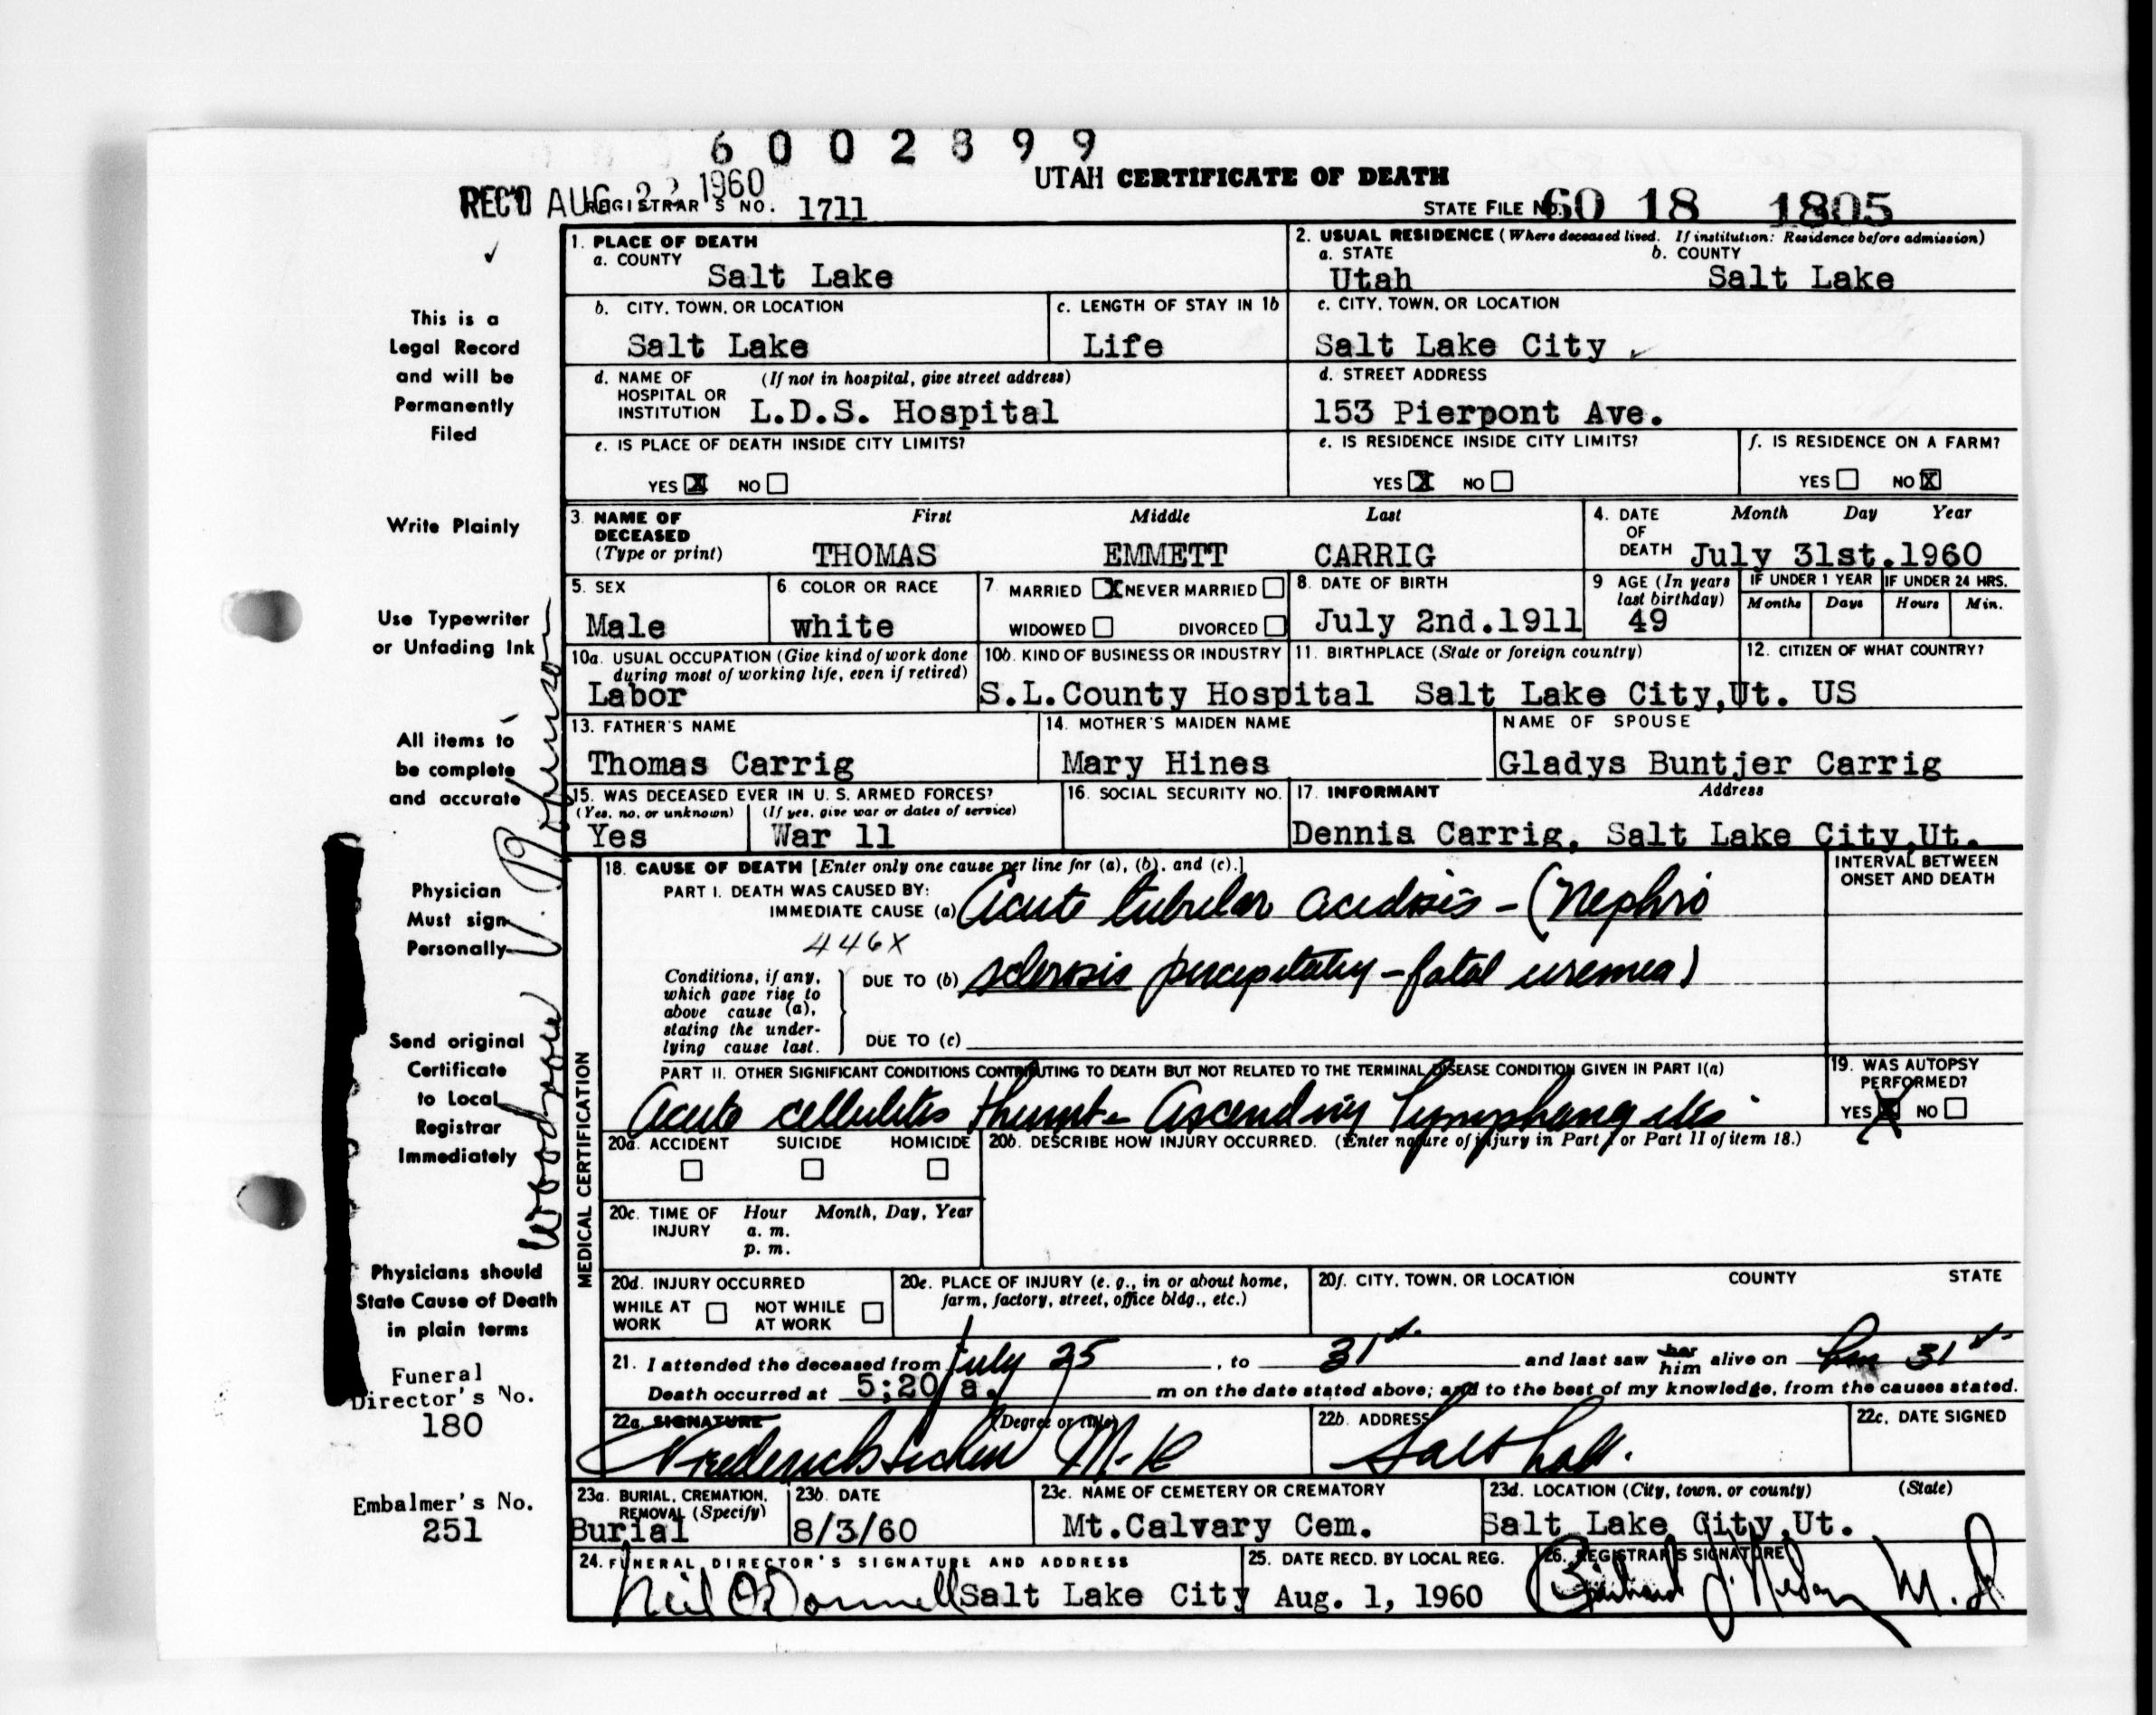 6 0 0 2 8 9 9
UTAH CERTIFICATE OF DEATH
REC'D AUG 1960
REGISTRAR'S NO. 1711
STATE FILE NO. 60 18 1805
1. PLACE OF DEATH
a. COUNTY
Salt Lake
2. USUAL RESIDENCE (Where deceased lived. If institution: Residence before admission)
a. STATE b. COUNTY
Utah Salt Lake
b. CITY, TOWN, OR LOCATION
Salt Lake
c. LENGTH OF STAY IN 1b
Life
c. CITY, TOWN, OR LOCATION
Salt Lake City
d. NAME OF HOSPITAL OR INSTITUTION (If not in hospital, give street address)
L.D.S. Hospital
d. STREET ADDRESS
153 Pierpont Ave.
e. IS PLACE OF DEATH INSIDE CITY LIMITS?
YES X NO
e. IS RESIDENCE INSIDE CITY LIMITS?
YES X NO
f. IS RESIDENCE ON A FARM?
YES NO X
3. NAME OF DECEASED (Type or print) First Middle Last
THOMAS EMMETT CARRIG
4. DATE OF DEATH Month Day Year
July 31st.1960
5. SEX
Male
6. COLOR OR RACE
white
7. MARRIED X NEVER MARRIED
WIDOWED DIVORCED
8. DATE OF BIRTH
July 2nd.1911
9 AGE (In years last birthday)
49
IF UNDER 1 YEAR IF UNDER 24 HRS.
Months Days Hours Min.
10a. USUAL OCCUPATION (Give kind of work done during most of working life, even if retired)
Labor
10b. KIND OF BUSINESS OR INDUSTRY
S.L.County Hospital
11. BIRTHPLACE (State or foreign country)
Salt Lake City,Ut.
12. CITIZEN OF WHAT COUNTRY?
US
13. FATHER'S NAME
Thomas Carrig
14. MOTHER'S MAIDEN NAME
Mary Hines
NAME OF SPOUSE
Gladys Buntjer Carrig
15. WAS DECEASED EVER IN U. S. ARMED FORCES?
(Yes, no, or unknown) (If yes, give war or dates of service)
Yes War 11
16. SOCIAL SECURITY NO.
17. INFORMANT Address
Dennis Carrig, Salt Lake City,Ut.
MEDICAL CERTIFICATION
18. CAUSE OF DEATH [Enter only one cause per line for (a), (b), and (c).]
INTERVAL BETWEEN ONSET AND DEATH
PART I. DEATH WAS CAUSED BY:
IMMEDIATE CAUSE (a) Acute tubular acidosis - (Nephro
446X
Conditions, if any, which gave rise to above cause (a), stating the underlying cause last.
DUE TO (b) sclerosis - fatal uremea)
DUE TO (c)
PART II. OTHER SIGNIFICANT CONDITIONS CONTRIBUTING TO DEATH BUT NOT RELATED TO THE TERMINAL DISEASE CONDITION GIVEN IN PART I(a)
Acute cellulitis thumb - Ascending lymphangitis
19. WAS AUTOPSY PERFORMED?
YES X NO
20a. ACCIDENT SUICIDE HOMICIDE
20b. DESCRIBE HOW INJURY OCCURRED. (Enter nature of injury in Part I or Part II of item 18.)
20c. TIME OF INJURY Hour Month, Day, Year
a. m.
p. m.
20d. INJURY OCCURRED
WHILE AT WORK NOT WHILE AT WORK
20e. PLACE OF INJURY (e. g., in or about home, farm, factory, street, office bldg., etc.)
20f. CITY, TOWN, OR LOCATION COUNTY STATE
21. I attended the deceased from July 25, to 31st and last saw her him alive on 31st
Death occurred at 5:20 a. m on the date stated above; and to the best of my knowledge, from the causes stated.
22a. SIGNATURE (Degree or title)
22b. ADDRESS
22c. DATE SIGNED
23a. BURIAL, CREMATION, REMOVAL (Specify)
Burial
23b. DATE
8/3/60
23c. NAME OF CEMETERY OR CREMATORY
Mt.Calvary Cem.
23d. LOCATION (City, town, or county) (State)
Salt Lake City,Ut.
24. FUNERAL DIRECTOR'S SIGNATURE AND ADDRESS
Neil O'Donnell Salt Lake City
25. DATE RECD. BY LOCAL REG.
Aug. 1, 1960
26. REGISTRAR'S SIGNATURE
This is a
Legal Record
and will be
Permanently
Filed
Write Plainly
Use Typewriter
or Unfading Ink
All items to
be complete
and accurate
Physician
Must sign
Personally
Send original
Certificate
to Local
Registrar
Immediately
Physicians should
State Cause of Death
in plain terms
Funeral
Director's No.
180
Embalmer's No.
251